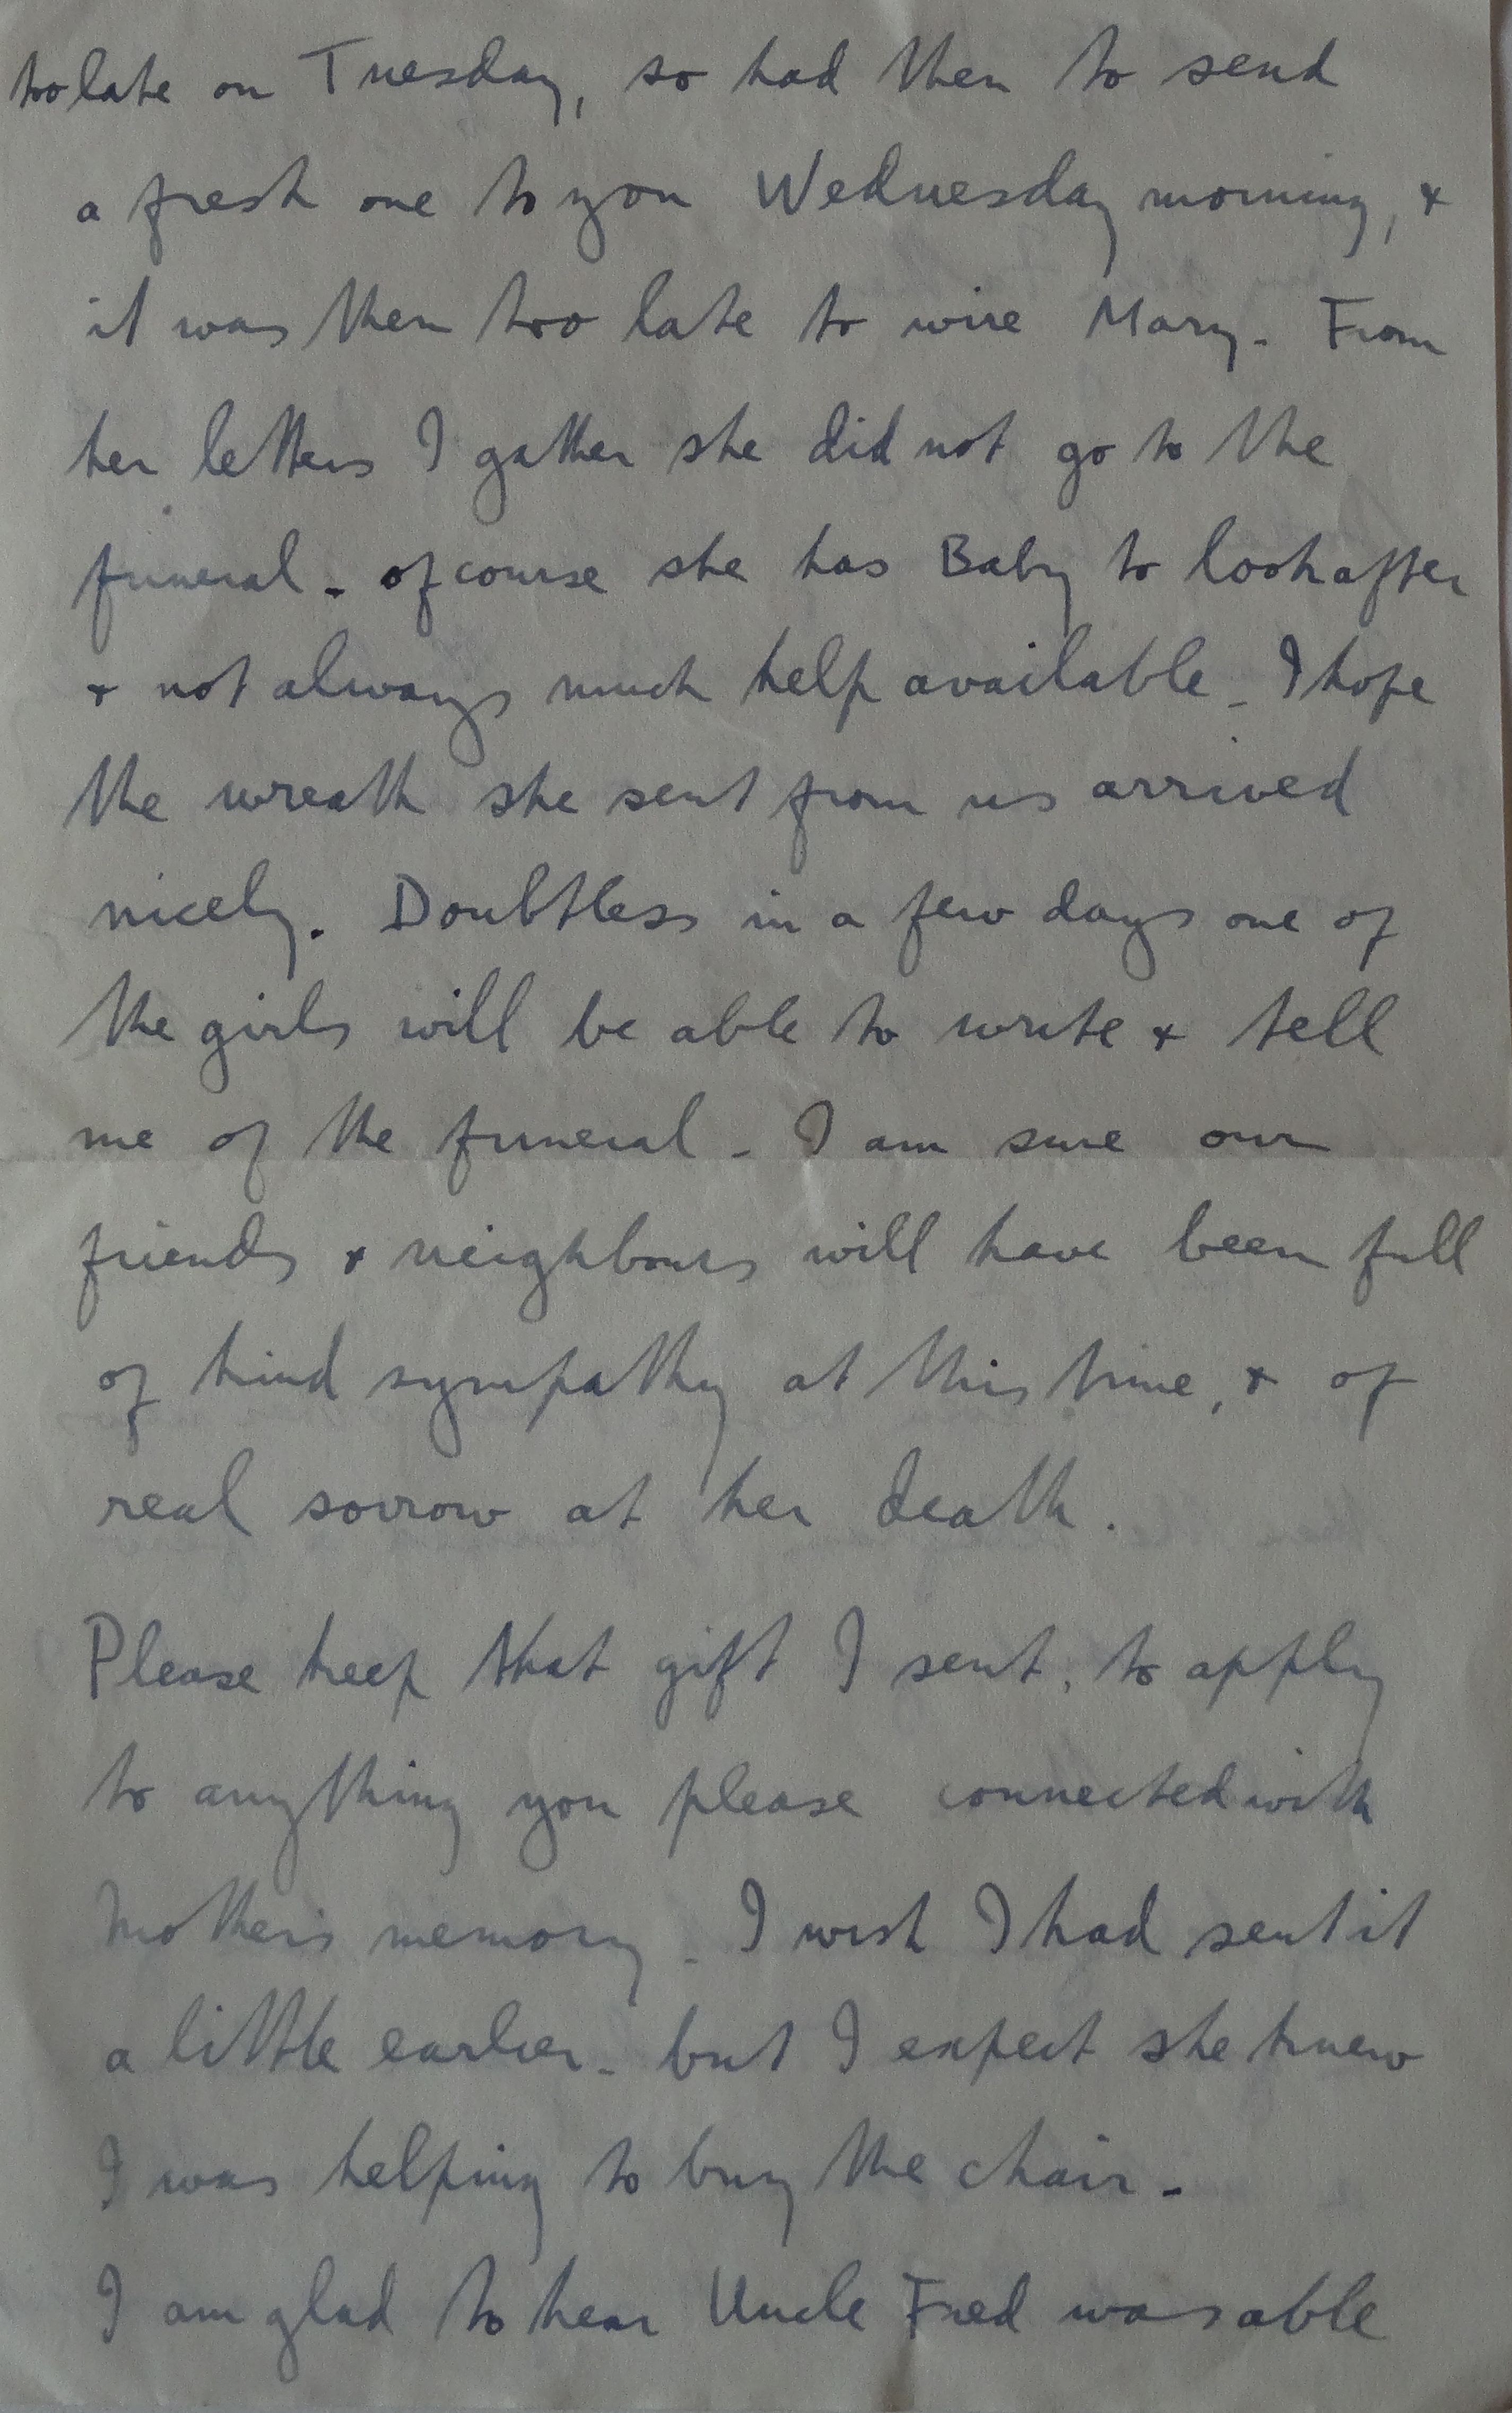 too late on Tuesday, so had then to send
a fresh one to you Wednesday morning, &
it was then too late to wire Mary. From
her letters I gather she did not go to the
funeral - of course she has Baby to look after
& not always much help available - I hope
the wreath she sent from us arrived
nicely. Doubtless in a few days one of
the girls will be able to write & tell
me of the funeral - I am sure our
friends & neighbours will have been full
of kind sympathy at this time, & of
real sorrow at her death.
Please keep that gift I sent, to apply
to anything you please connected with
Mother's memory - I wish I had sent it
a little earlier - but I expect she knew
I was helping to buy the chair -
I am glad to hear Uncle Fred was able